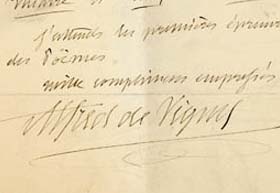 J'attends les premières épreuves
des Poèmes.
mille complimens empressés
Alfred de Vigny